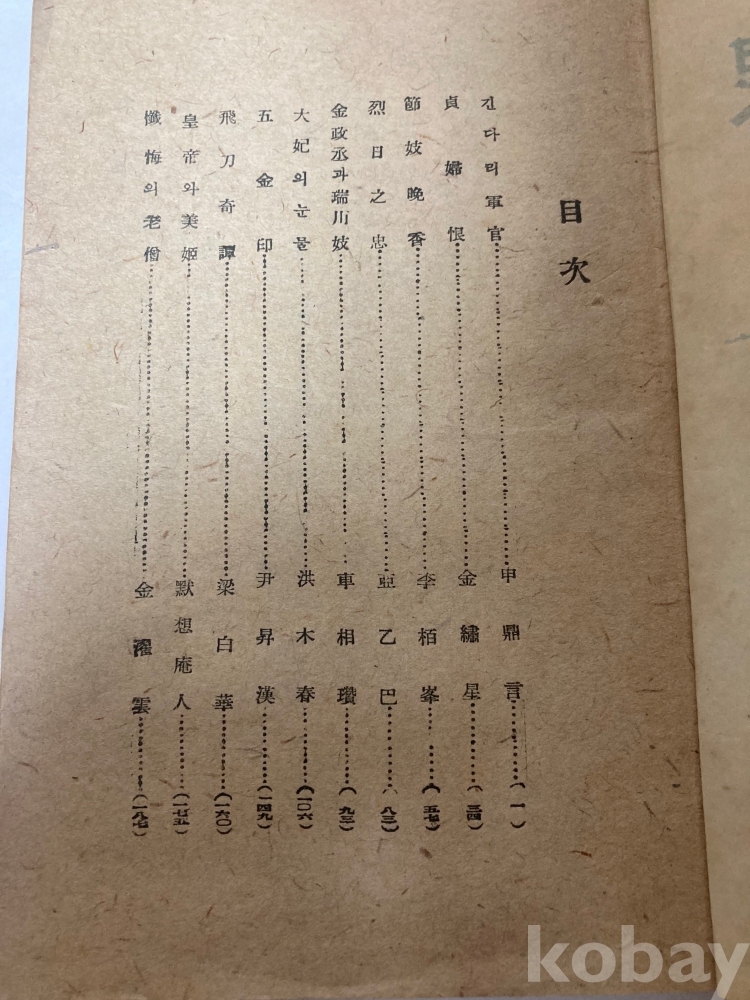 目次
긴다리軍官 申鼎言 (一)
貞婦恨 金繡星 (三四)
節妓晩香 李栢峯 (五七)
烈日之忠 亞乙巴 (八三)
金政丞과瑞川妓 車相瓚 (九三)
大妃의눈물 洪木春 (一〇六)
五金印 尹昇漢 (一四九)
飛刀奇譚 梁白華 (一六〇)
皇帝와美姬 默想庵人 (一七五)
懺悔의老僧 金濯雲 (一八七)
kobay